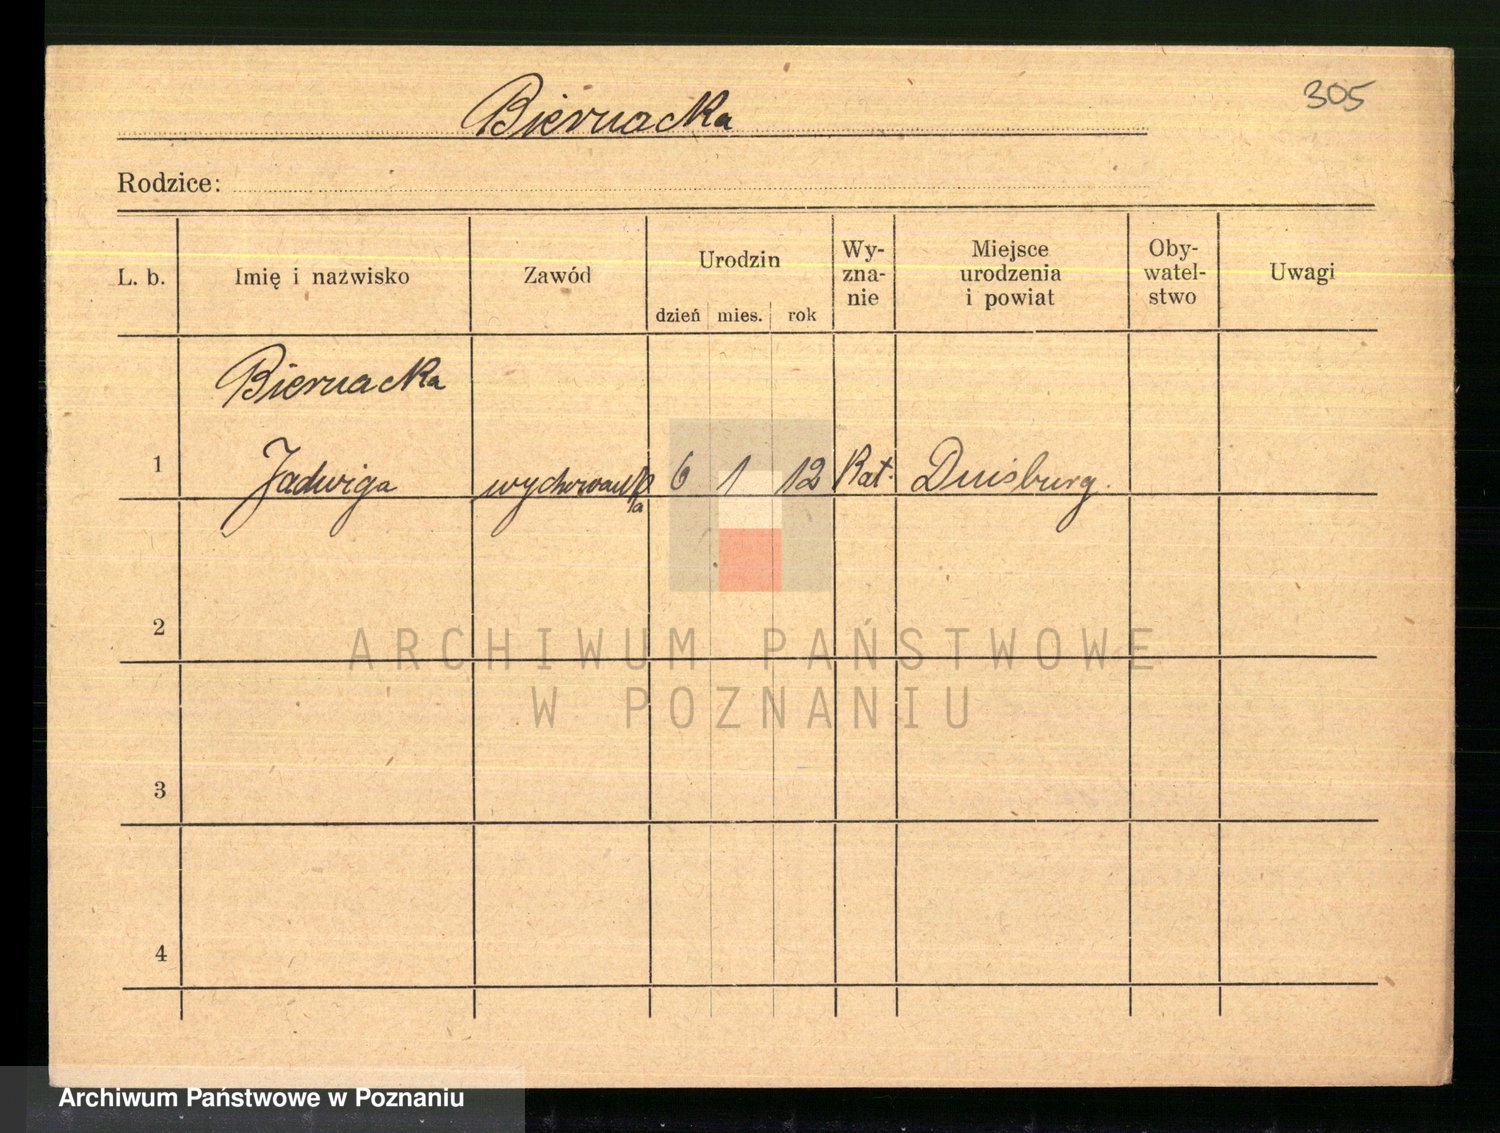 305
Biernacka
Rodzice:
L. b. Imię i nazwisko Zawód Urodzin dzień mies. rok Wy-
zna-
nie Miejsce
urodzenia
i powiat Oby-
watel-
stwo Uwagi
Biernacka
1 Jadwiga wychowanka 6 1 12 Kat. Duisburg.
2
3
4
ARCHIWUM PAŃSTWOWE
W POZNANIU
Archiwum Państwowe w Poznaniu